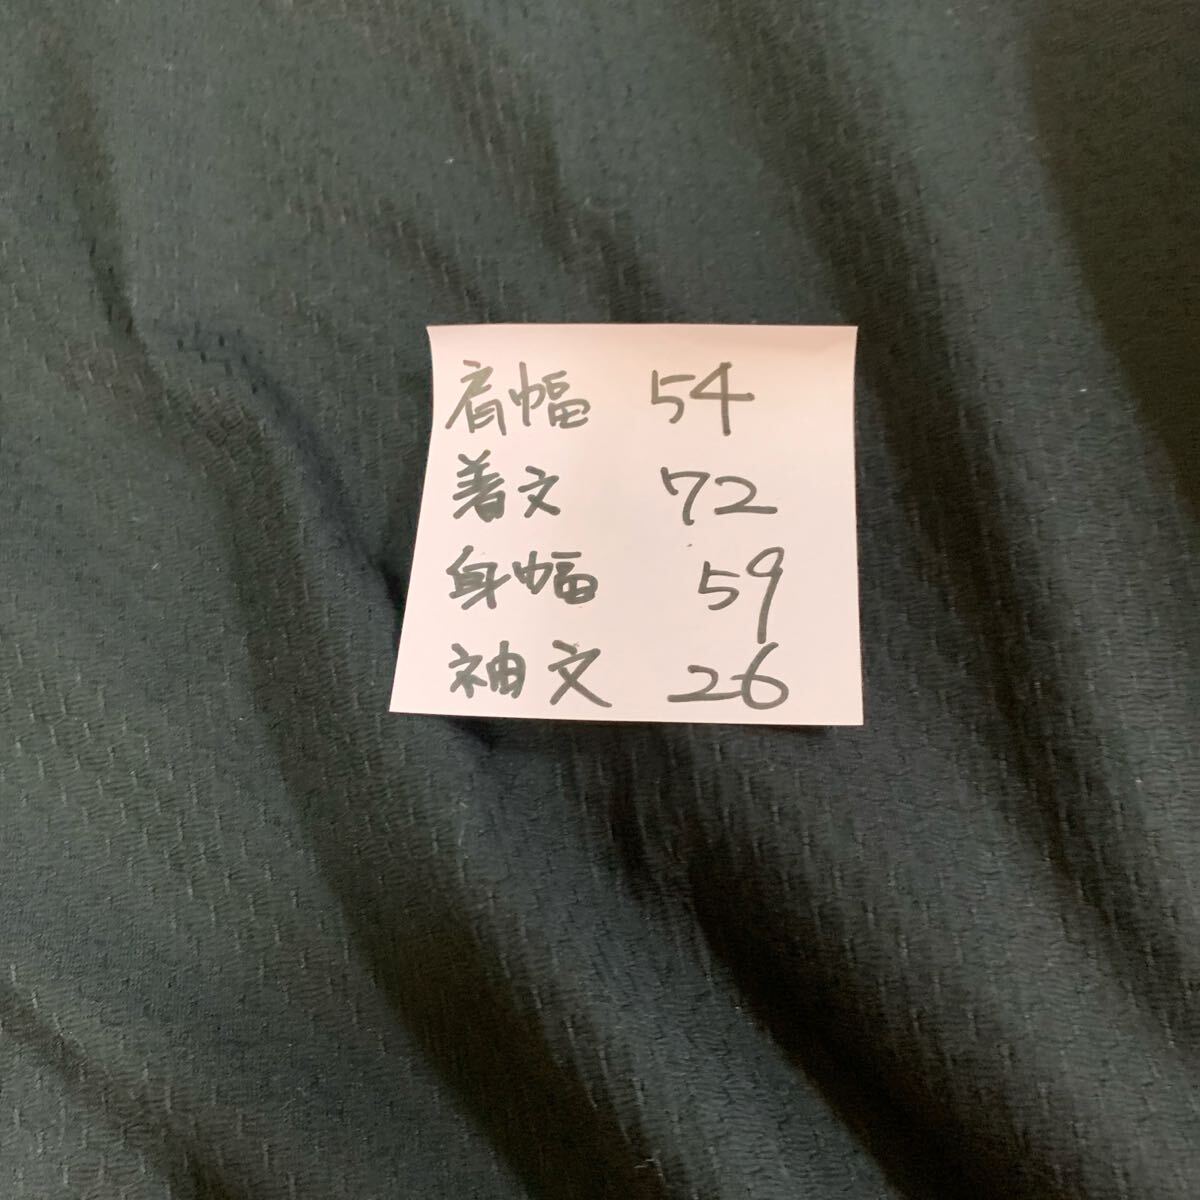 肩幅 54
着丈 72
身幅 59
袖丈 26